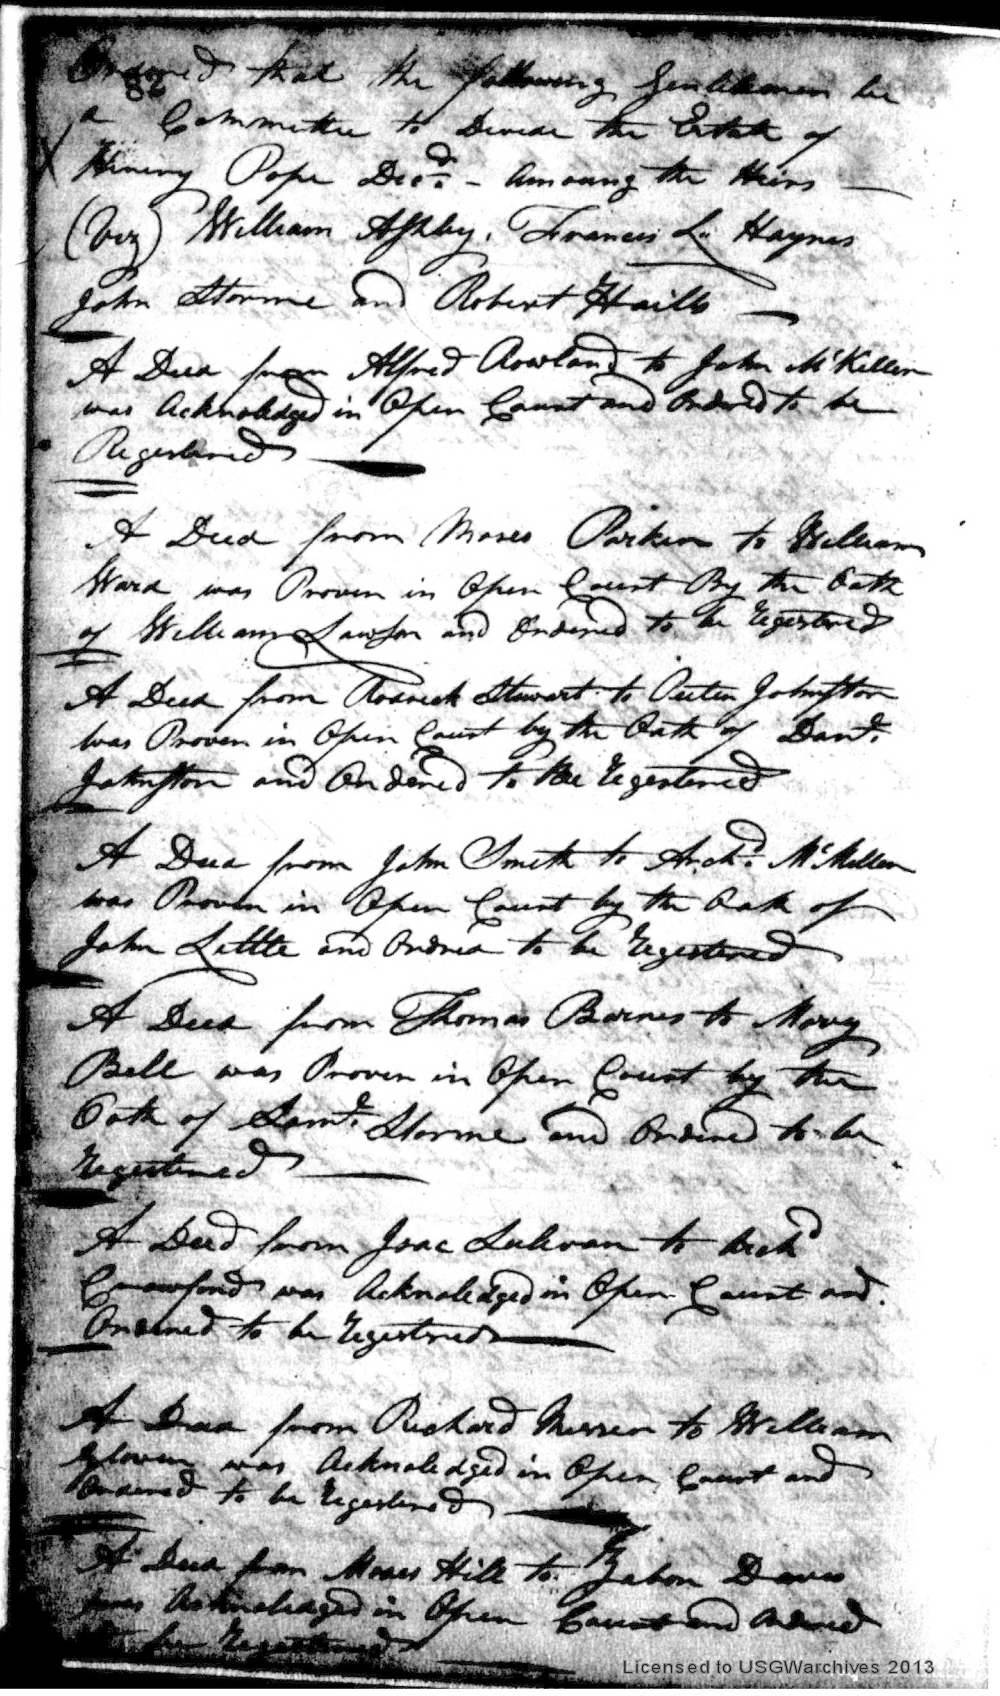 Ordered that the following Gentlemen be
86
a Committee to Devide the Estate of
Hennery Pope Decd. - amoung the Heirs
(Viz) William Ashley, Francis L. Haynes
John Storme and Robert Hails
A Deed from Alfred Rowland to John McKillen
was Acknoledged in Open Court and Ordered to be
Registered
A Deed from Moses Parker to William
Ward was Proven in Open Court By the Oath
of William Lawson and Ordered to be Regestered
A Deed from Rodrick Stewart to Peeter Johnston
was Proven in Open Court by the Oath of Danl.
Johnston and Ordered to be Regestered
A Deed from John Smith to Archd. McMillen
was Proven in Open Court by the Oath of
John Little and Ordred to be Regestered
A Deed from Thomas Barnes to Mary
Bell was Proven in Open Court by the
Oath of Saml. Storme and Ordered to be
Regestered
A Deed from Jsac Sulivan to Archd
Crawford was Acknoledged in Open Court and
Ordered to be Regestered
A Deed from Richard to William
Glover was Acknoledged in Open Court and
Ordered to be Regestered
A Deed from Moses Hill to Davis
was Acknoledged in Open Court and Ordered
to be Regestered
Licensed to USGWarchives 2013